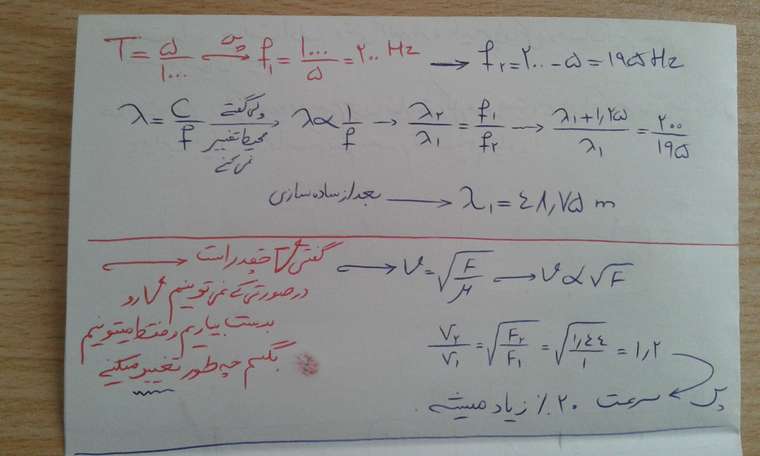 T = ۵/۱۰۰۰ ⟶ پس f₁ = ۱۰۰۰/۵ = ۲۰۰ Hz ⟶ f₂ = ۲۰۰ - ۵ = ۱۹۵ Hz
λ = C/f ⟶ وقتی گفته محیط تغییر نمی کنه λ ∝ ۱/f → λ₂/λ₁ = f₁/f₂ → λ₁+۱٫۲۵/λ₁ = ۲۰۰/۱۹۵
بعد از ساده سازی ⟶ λ₁ = ۴۸٫۷۵ m
گفتی V چقدر است ⟷ V = √F/μ → V ∝ √F
در صورتی که نمی تونیم V رو
بدست بیاریم و فقط میتونیم
بگیم چه طور تغییر میکنه
V₂/V₁ = √F₂/F₁ = √۱٫۴۴/۱ = ۱٫۲
پس سرعت ۲۰٪ زیاد میشه.